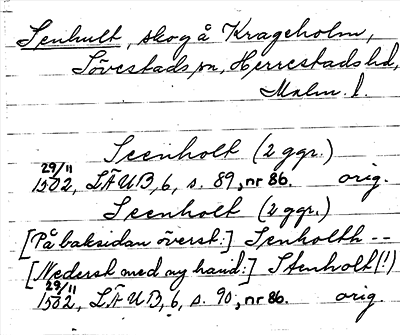 Senhult, skog å Krageholm,
Sövestads sn, Herrestads hd,
Malm. l.
Seenholt (2 ggr.)
29/11
1502, LÄUB, 6, s. 89, nr 86. orig.
Seenholt (2 ggr.)
[På baksidan överst:] Senholth --
[Nederst med ny hand:] Stenholt(!)
29/11
1502, LÄUB, 6, s. 90, nr 86. orig.